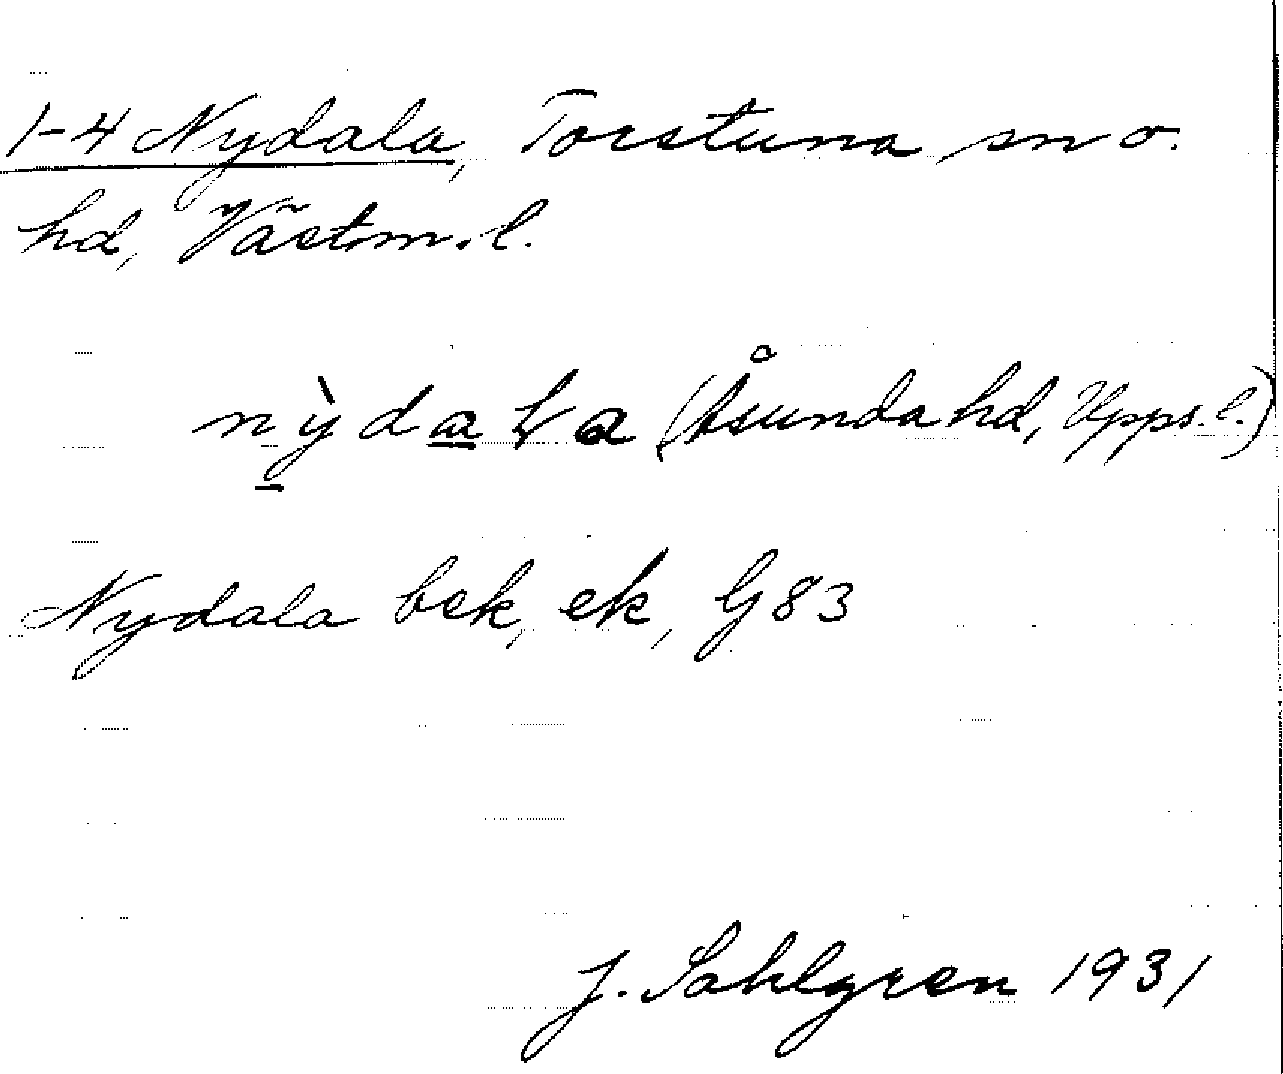 1-4 Nydala, Torstuna sn o.
hd, Västm. l.
nỳdaɽa (Åsunda hd, Upps. l.)
Nydala bek, ek, G 83
J. Sahlgren 1931